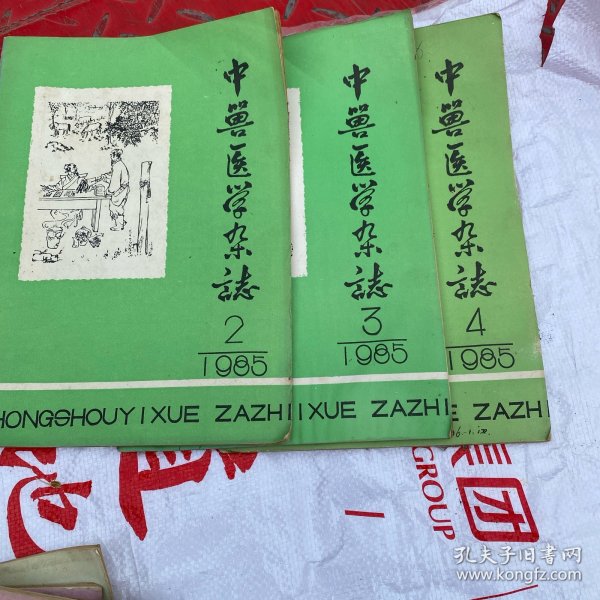 中兽医学杂誌
2
1985
HONGSHOUYIXUE ZAZHI
中兽医学杂誌
3
1985
IXUE ZAZHI
中兽医学杂誌
4
1985
E ZAZHI
集团
GROUP
孔夫子旧书网
www.kongfz.com